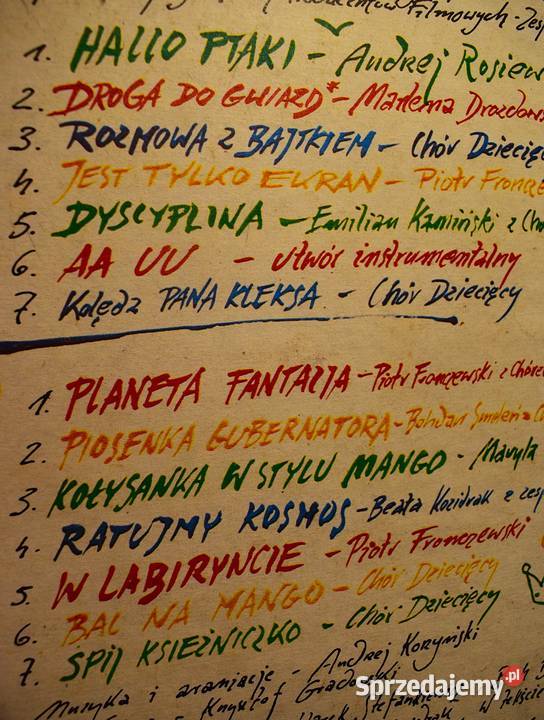 Filmowych - Zesp
1. HALLO PTAKI - Andrej Rosiew
2. DROGA DO GWIAZD* - Marlena Drozdows
3. ROZMOWA Z BAJTKIEM - Chór Dziecięc
4. JEST TYLKO EKRAN - Piotr Fronczew
5. DYSCYPLINA - Emilian Kamiński z Chó
6. AA UU - utwór instrumentalny
7. Kolęda PANA KLEKSA - Chór Dziecięcy
1. PLANETA FANTAZJA - Piotr Fronczewski z Chórem
2. PIOSENKA GUBERNATORA - Bohdan Smoleń z Ch
3. KOŁYSANKA W STYLU MANGO - Maryla
4. RATUJMY KOSMOS - Beata Kozidrak z zesp
5. W LABIRYNCIE - Piotr Fronczewski
6. BAL NA MANGO - Chór Dziecięcy
7. ŚPIJ KSIĘŻNICZKO - Chór Dziecięcy
Muzyka i aranżacje - Andrzej Korzyński
Krzysztof Gradowski
Sprzedajemy.pl